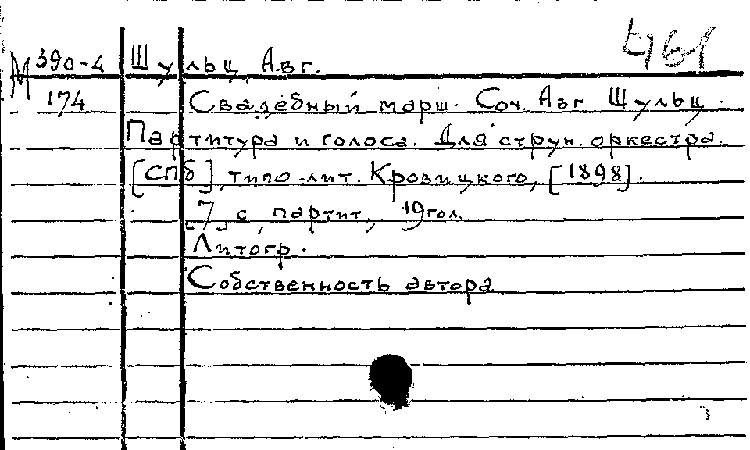 М 390-4 Шульц, Авг.
174 Свадебный марш. Соч. Авг. Шульц.
Партитура и голоса. Для струн. оркестра.
[СПб], типо-лит. Кровицкого, [1898].
[7] с. партит., 19 гол.
Литогр.
Собственность автора